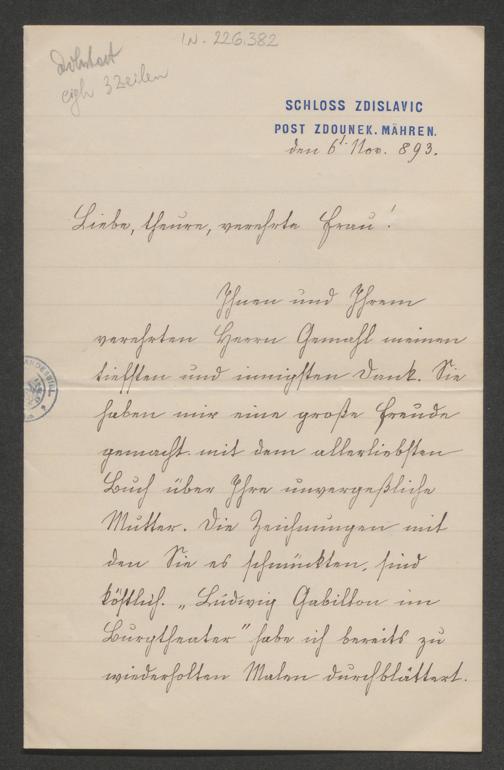 I.N. 226.382
Diktat
eigh 3 Zeilen
SCHLOSS ZDISLAVIC
POST ZDOUNEK. MÄHREN.
den 6t. Nov. 893.
Liebe, theure, verehrte Frau!
Ihnen und Ihrem
verehrten Herrn Gemahl meinen
tiefsten und innigsten Dank. Sie
haben mir eine große Freude
gemacht mit dem allerliebsten
Buch über Ihre unvergeßliche
Mutter. Die Zeichnungen mit
den Sie es schmückten, sind
köstlich. „Ludwig Gabillon im
Burgtheater" habe ich bereits zu
wiederholten Malen durchblättert.